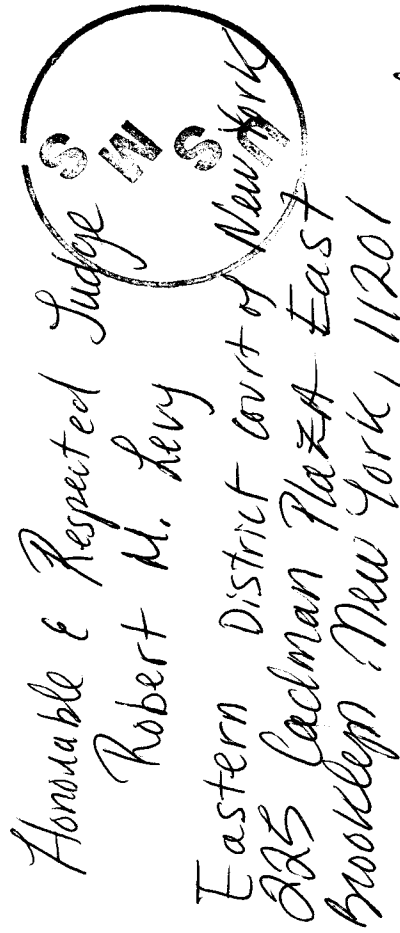 Honorable & Respected Judge
Robert M. Levy
Eastern District court of New York
225 Cadman Plaza East
Brooklyn New York, 11201
USMS